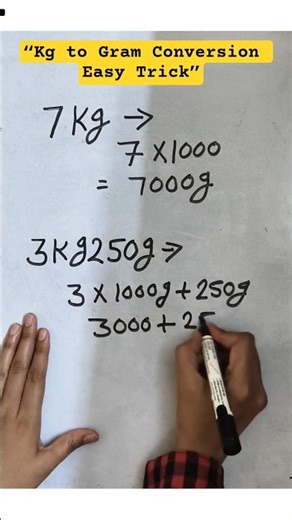 “Kg to Gram Conversion
Easy Trick”
7Kg →
7 X1000
= 7000g
3Kg250g →
3 X 1000g + 250g
3000 + 25